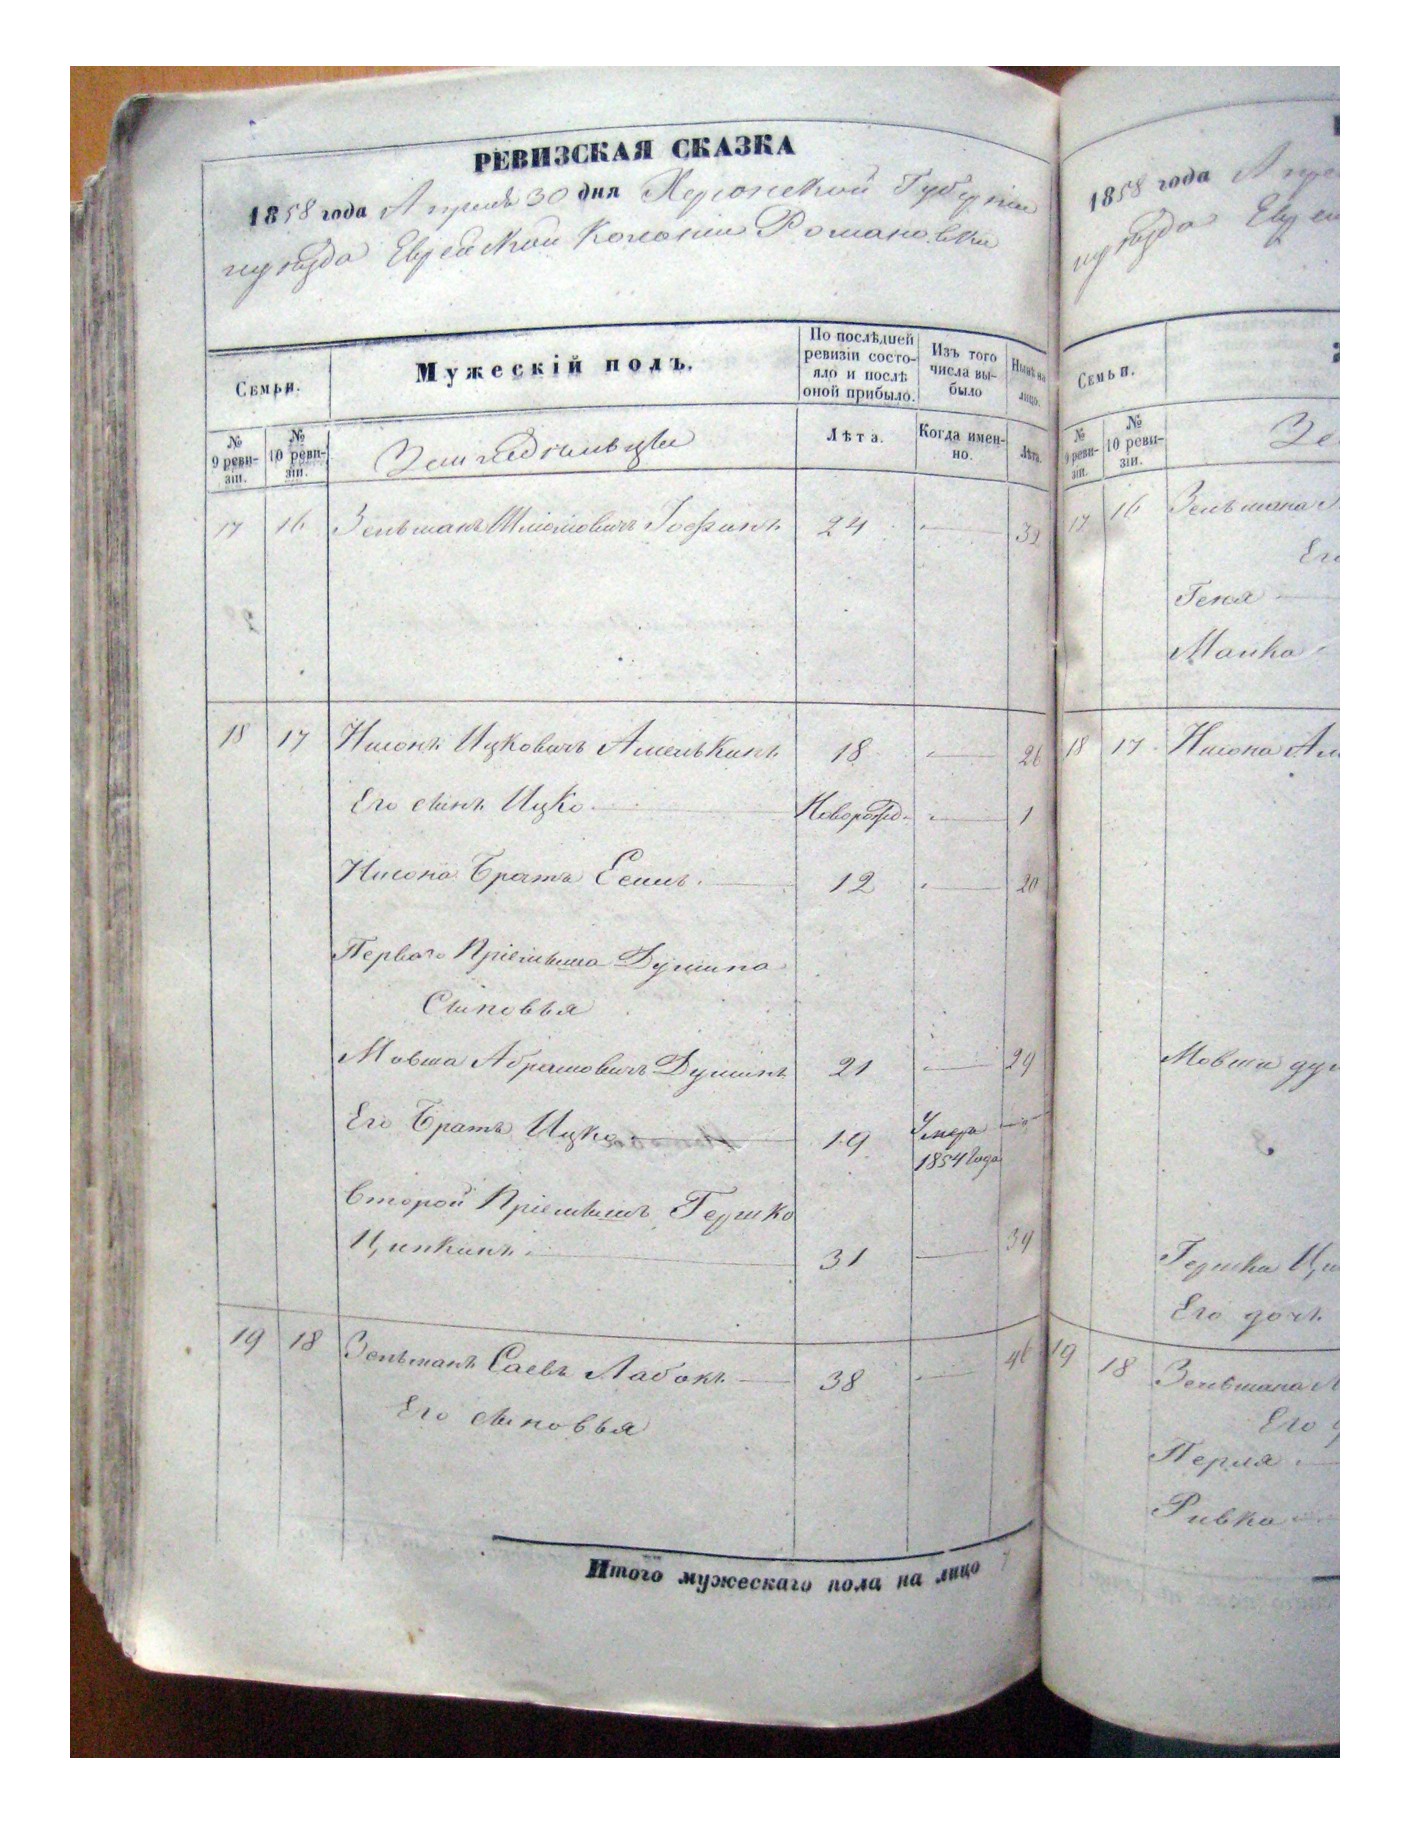 РЕВИЗСКАЯ СКАЗКА
1858 года Апреля 30 дня Херсонской Губернии
и уезда Еврейской Колонии Романовки
Семьи.
Мужескій полъ.
По послѣдней
ревизіи состо-
яло и послѣ
оной прибыло.
Изъ того
числа вы-
было
Нынѣ на
лицо.
№
9 реви-
зіи.
№
10 реви-
зіи.
Земледельцы
Лѣта.
Когда имен-
но.
Лѣта.
17 16 Зельманъ Шлиомовичъ Гофинъ 24 — 32
18 17 Нисонъ Ицковичъ Амелькинъ 18 — 26
Его сынъ Ицко Новорожд. — 1
Нисона братъ Есель 12 — 20
Первого Пріемыша Душина
Сыновья
Мовша Абрамовичъ Душинъ 21 — 29
Его братъ Ицко 19 Умеръ —
1854 года
Второй Пріемышъ Гершко
Ципкинъ 31 — 39
19 18 Зельманъ Саевъ Лабокъ 38 — 46
Его сыновья
Итого мужескаго пола на лицо 7
1858 года
и уезда
Семьи.
№
9 реви-
зіи.
№
10 реви-
зіи.
17 16 Зельмана
Геня
Манка
18 17 Нисона
Мовши
Гершка
Его дочь
19 18 Зельмана
Его
Перля
Ривка